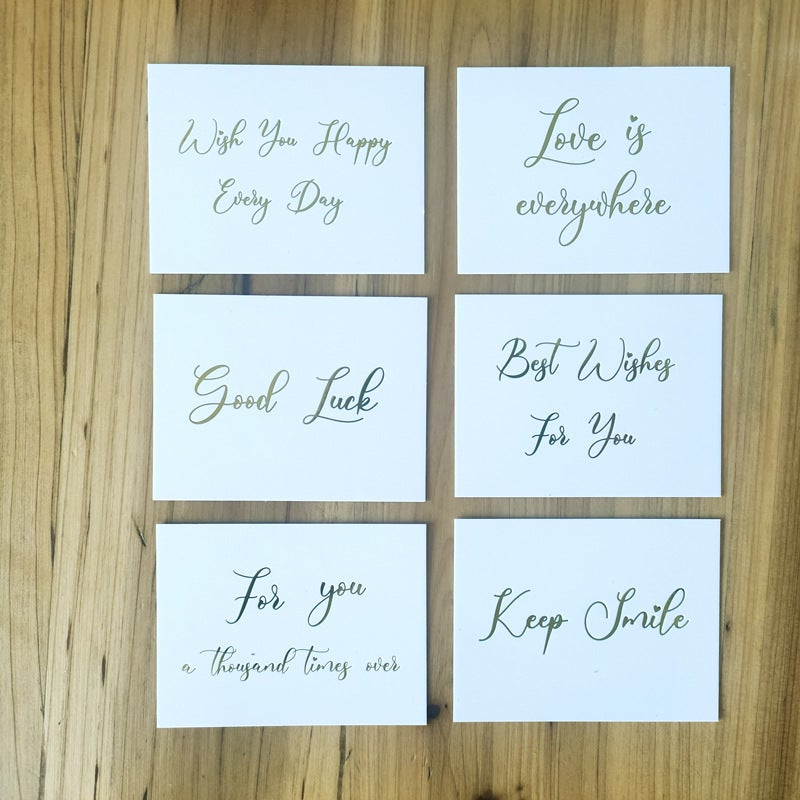 Wish You Happy
Every Day
Love is
everywhere
Good Luck
Best Wishes
For You
For you
a thousand times over
Keep Smile